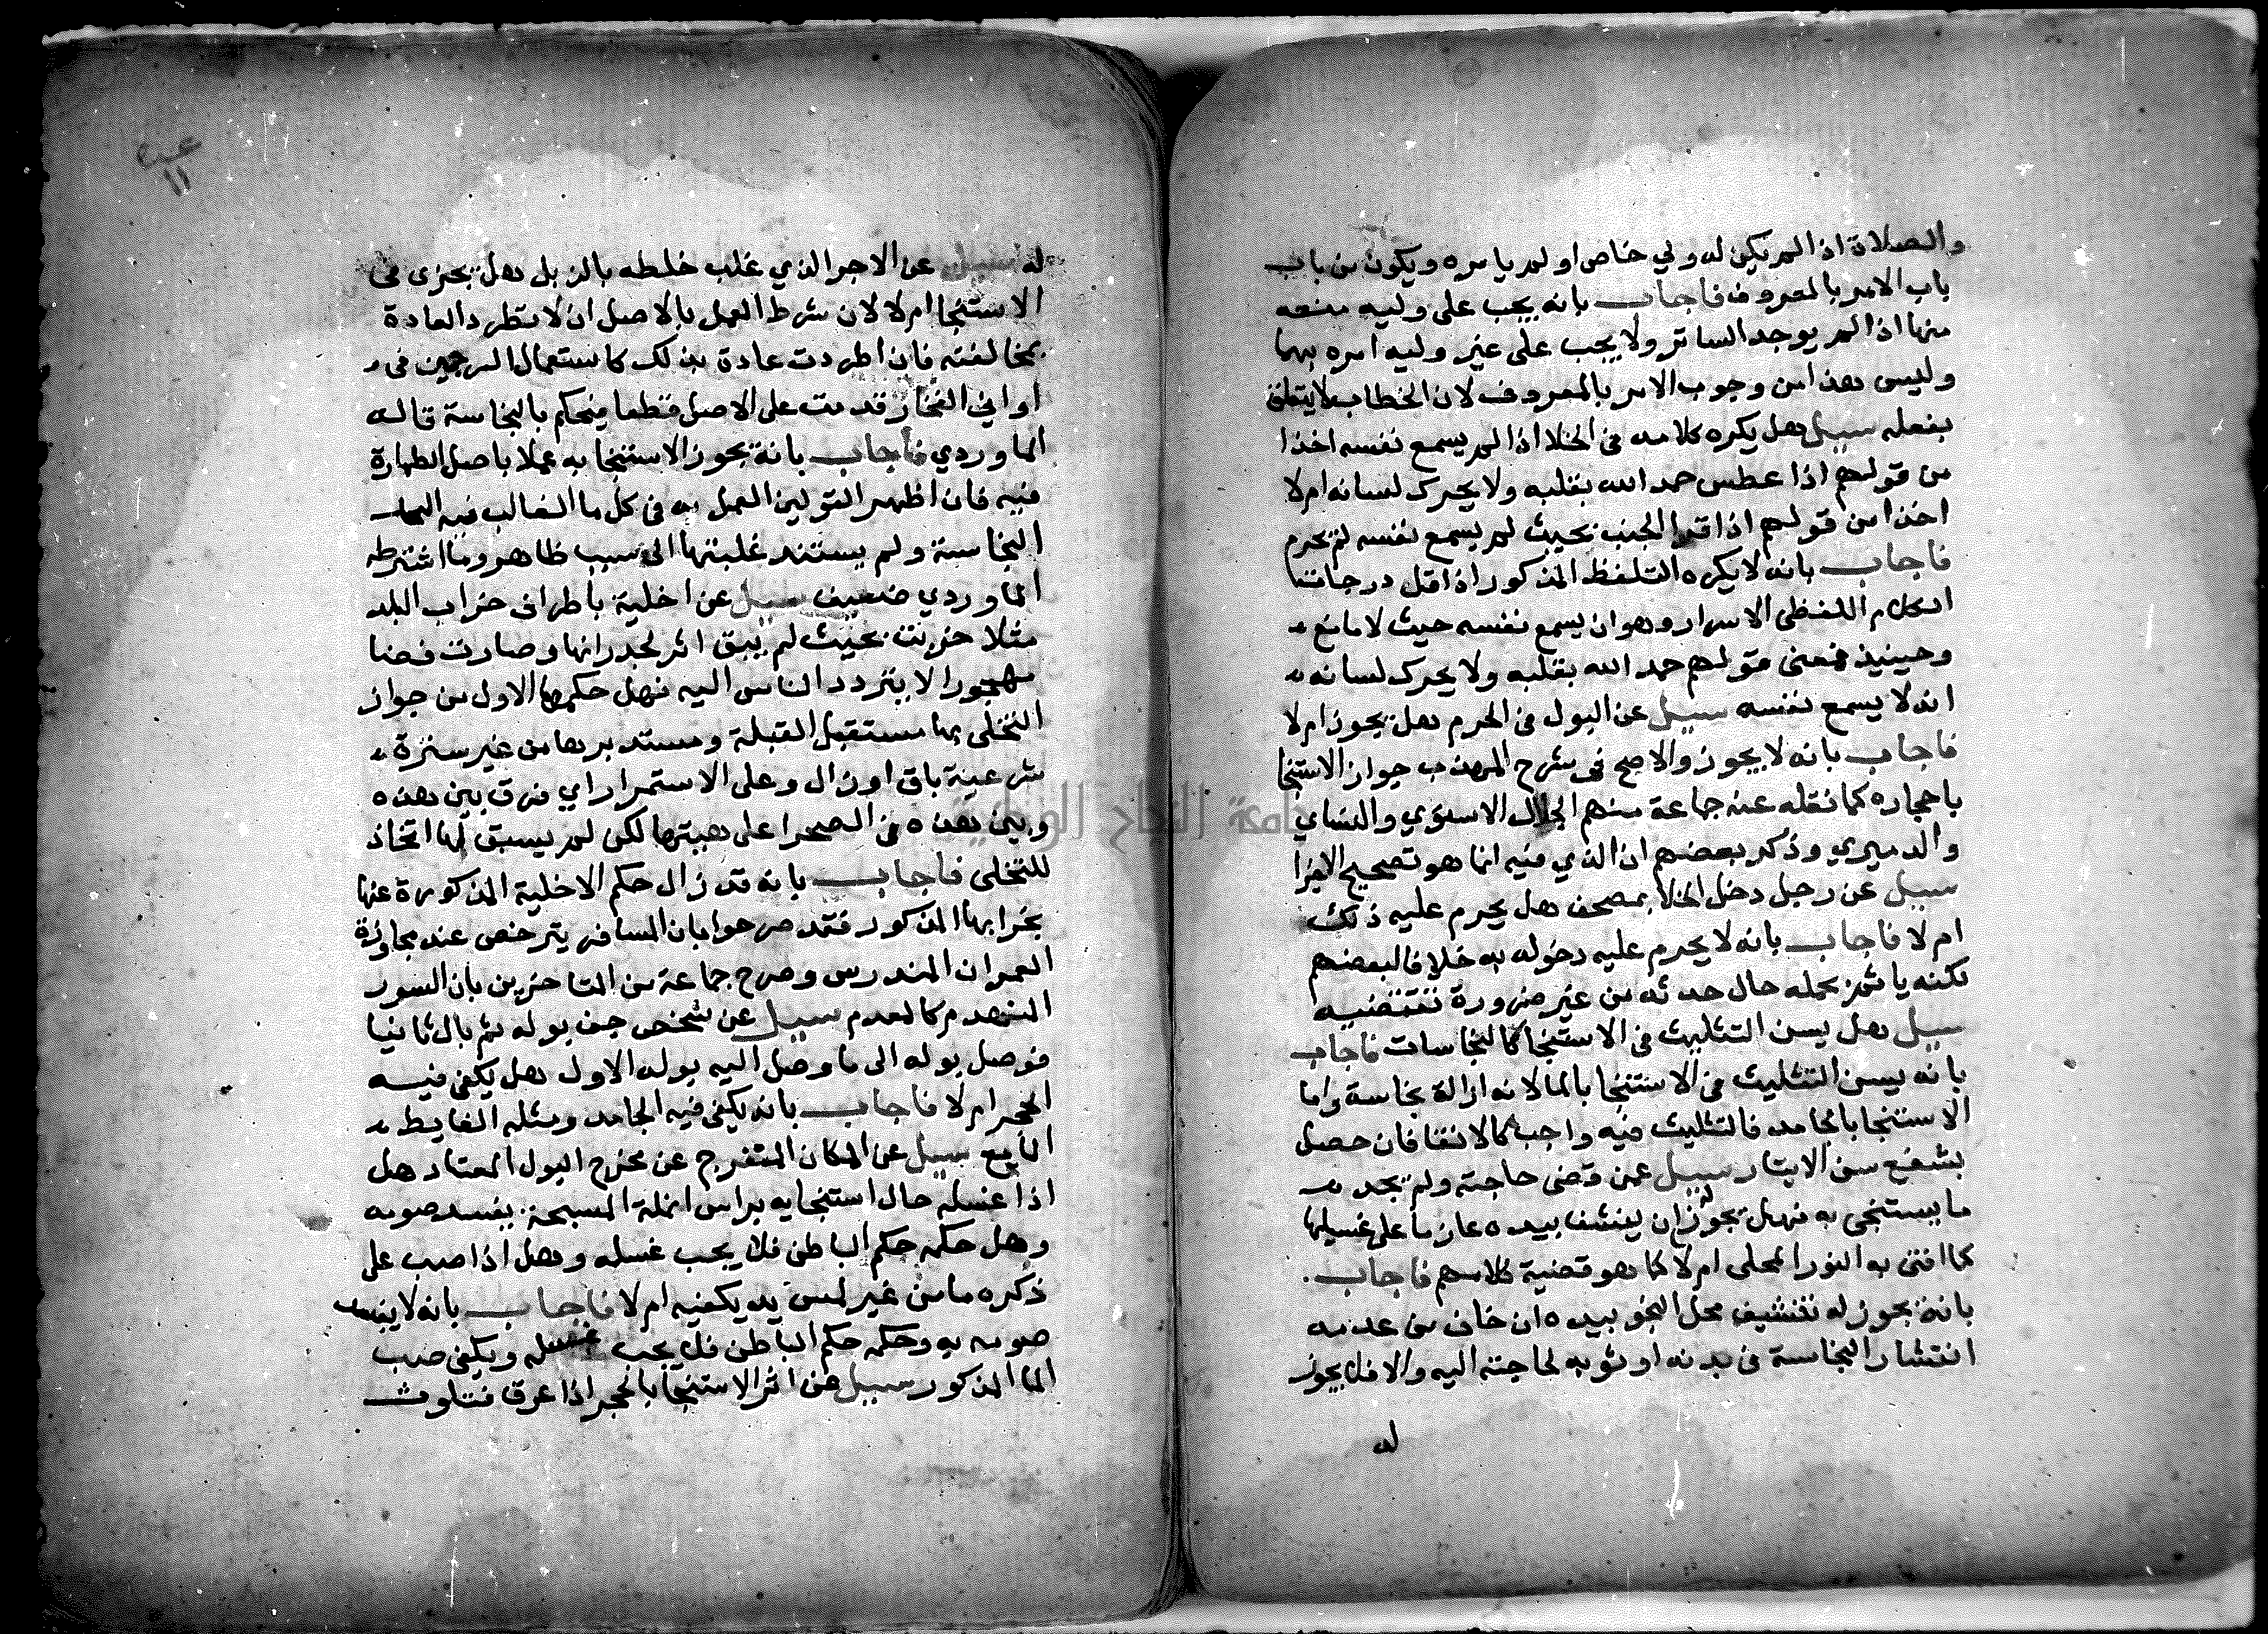 والصلاة اذا لم يكن له ولي خاص او لم يامره ويكون من باب
باب الامر بالمعروف فاجاب بانه يجب على وليه منعه
منها اذا لم يوجد الساتر ولا يجب على غير وليه امره بها
وليس هذا من وجوب الامر بالمعروف لان الخطاب لا يتعلق
بفعله سيل هل يكره كلامه في الخلا اذا لم يسمع نفسه اخذا
من قولهم اذا عطس حمد الله بقلبه ولا يحرك لسانه ام لا
اخذا من قولهم اذا قرا الجنب بحيث لم يسمع نفسه لم يحرم
فاجاب بانه لا يكره التلفظ المذكور اذ اقل درجات
الكلام اللفظي الاسرار وهو ان يسمع نفسه حيث لا مانع
وحينيذ فمعنى قولهم حمد الله بقلبه ولا يحرك لسانه
انه لا يسمع نفسه سيل عن البول في الحرم هل يجوز ام لا
فاجاب بانه لا يجوز والاصح في شرح المهذب جواز الاستنجا
باحجاره كما نقله عنه جماعة منهم الجلال الاسنوي والنشاي
والدميري وذكر بعضهم ان الذي فيه انما هو تصحيح الاجزا
سيل عن رجل دخل الخلا بمصحف هل يحرم عليه ذلك
ام لا فاجاب بانه لا يحرم عليه دخوله به خلافا لبعضهم
لكنه ياثم بحمله حال حدثه من غير ضرورة تقتضيه
سيل هل يسن التثليث في الاستنجا كالنجاسات فاجاب
بانه يسن التثليث في الاستنجا بالما لانه ازالة نجاسة واما
الاستنجا بالجامد فالتثليث فيه واجب كالانقا فان حصل
بشفع سن الايتار سيل عمن قضى حاجته ولم يجد
ما يستنجى به فهل يجوز له ان ينشف بيده عازما على غسلها
كما افتى به النور المحلى ام لا كما هو قضية كلامهم فاجاب
بانه يجوز له تنشيف محل النجو بيده ان خاف من عدمه
انتشار النجاسة في بدنه او ثوبه لحاجته اليه والا فلا يجوز
له
١١
له سيل عن الاجر الذي غلب خلطه بالزبل هل يجزى في
الاستنجا ام لا لان شرط العمل بالاصل ان لا تطرد العادة
بمخالفته فان اطردت عادة بذلك كاستعمال السرجين في
اواني الفخار قدمت على الاصل قطعا فيحكم بالنجاسة قاله
الماوردي فاجاب بانه يجوز الاستنجا به عملا باصل الطهارة
فيه فان اظهر القولين العمل به في كل ما الغالب فيه
النجاسة ولم يستند غلبتها الى سبب ظاهر وما اشترطه
الماوردي ضعيف سيل عن اخلية باطراف خراب البلد
مثلا خربت بحيث لم يبق اثر لجدرانها وصارت فضا
مهجورا لا يتردد الناس اليه فهل حكمها الاول من جواز
التخلى بها مستقبل القبلة ومستدبرها من غير سترة
شرعية باق او زال وعلى الاستمرار اي فرق بين هذه
وبين هذه في الصحرا على هيتها لكن لم يسبق لها اتخاذ
للتخلى فاجاب بانه قد زال حكم الاخلية المذكورة عنها
بخرابها المذكور فقد صرحوا بان المسافر يترخص عند مجاوزة
العمران المندرس وصرح جماعة من المتاخرين بان السور
المنهدم كالعدم سيل عن شخص جف بوله ثم بال ثانيا
فوصل بوله الى ما وصل اليه بوله الاول هل يكفى فيه
الحجر ام لا فاجاب بانه يكفى فيه الجامد ومثله الغايط
المايع سيل عن المكان المنفرج عن مخرج البول المعتاد هل
اذا غسله حال استنجايه براس انملة المسبحة يفسد صومه
وهل حكمه حكم الباطن فلا يجب غسله وهل اذا صب على
ذكره ما من غير لمس يد يكفيه ام لا فاجاب بانه لا يفسد
صومه به وحكمه حكم الباطن فلا يجب غسله ويكفى صب
الما المذكور سيل عن اثر الاستنجا بالحجر اذا عرق فتلوث
جامعة النجاح الوطنية